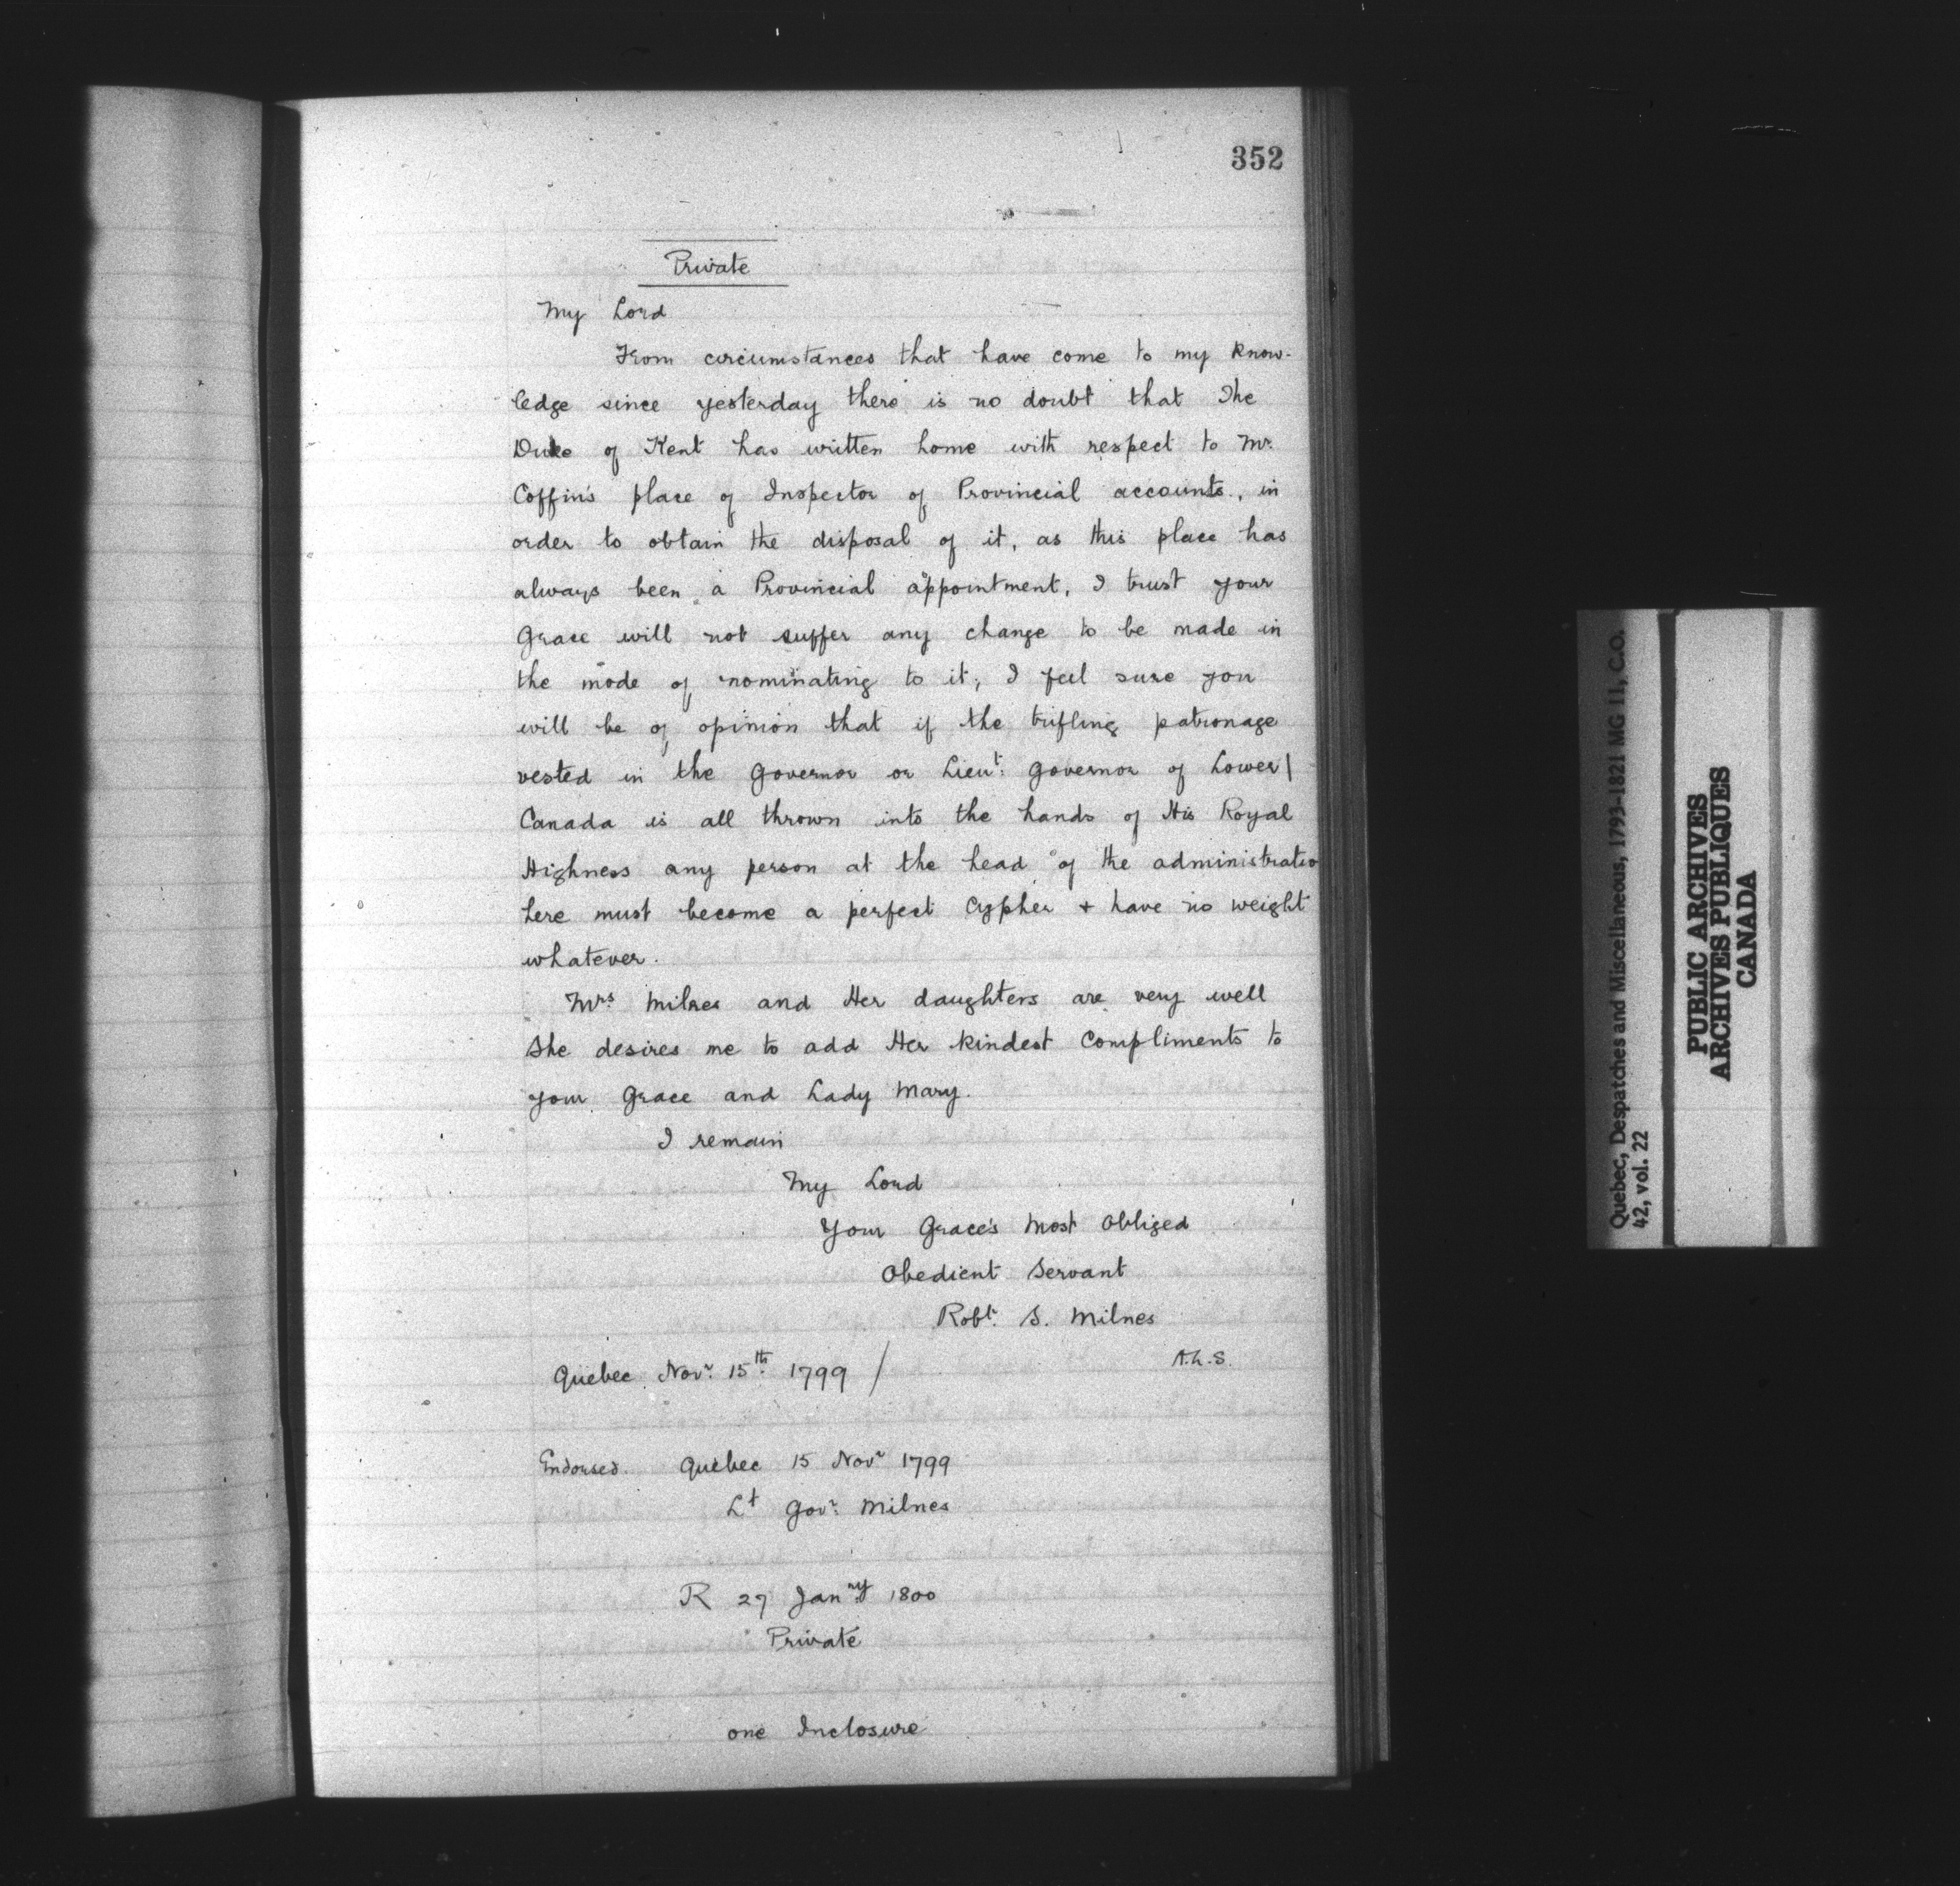 352
Private
My Lord
From circumstances that have come to my know-
ledge since yesterday there is no doubt that The
Duke of Kent has written home with respect to Mr.
Coffin's place of Inspector of Provincial accounts, in
order to obtain the disposal of it, as this place has
always been a Provincial appointment, I trust your
Grace will not suffer any change to be made in
the mode of nominating to it; I feel sure you
will be of opinion that if the trifling patronage
vested in the Governor or Lieut: Governor of Lower
Canada is all thrown into the hands of His Royal
Highness any person at the head of the administratio
here must become a perfect Cypher + have no weight
whatever.
Mrs. Milnes and Her daughters are very well
She desires me to add Her kindest Compliments to
your Grace and Lady Mary.
I remain
My Lord
Your Grace's Most Obliged
Obedient Servant
Robt. S. Milnes
A.L.S.
Quebec Novr. 15th. 1799 /
Endorsed. Quebec 15 Novr 1799
Lt Govr: Milnes
R 27 Janry 1800
Private
one Inclosure
Quebec, Despatches and Miscellaneous, 1793-1821 MG 11, C.O.
42, vol. 22
PUBLIC ARCHIVES
ARCHIVES PUBLIQUES
CANADA